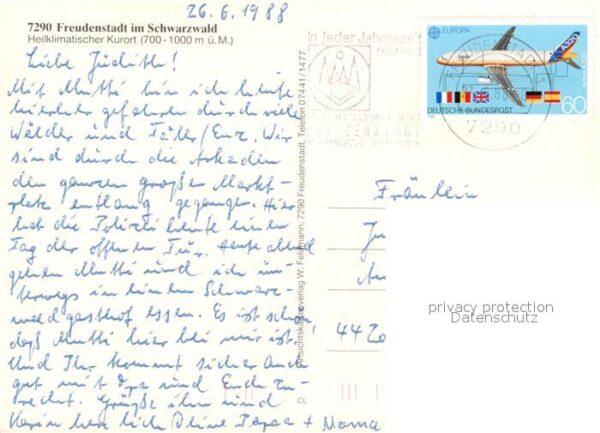 26.6.1988
7290 Freudenstadt im Schwarzwald
Heilklimatischer Kurort (700-1000 m ü. M.)
Liebe Judith!
Mit Mutti bin ich heute
hierher gefahren durch viele
Wälder und Täler/Enz. Wir
sind durch die Arkaden
den ganzen großen Markt-
platz entlang gegangen. Hier
hat die Polizei heute einen
Tag der offenen Tür. Heute abend
gehen Mutti und ich un-
terwegs in einen Schwarz-
waldgasthof essen. Es ist schön,
daß Mutti hier bei mir ist!
Und Ihr kommt sicher auch
gut mit Opa und Euch zu-
recht. Grüße ihn und
Karin herzlich Deine Papa + Mama
Ansichtskartenverlag W. Feldmann, 7290 Freudenstadt, Telefon 07441/1477
CL
In jeder Jahreszeit
FREUDENSTADT
7290
EUROPA
A320
DEUTSCHE BUNDESPOST
60
Fräulein
Ju
44 20
privacy protection
Datenschutz